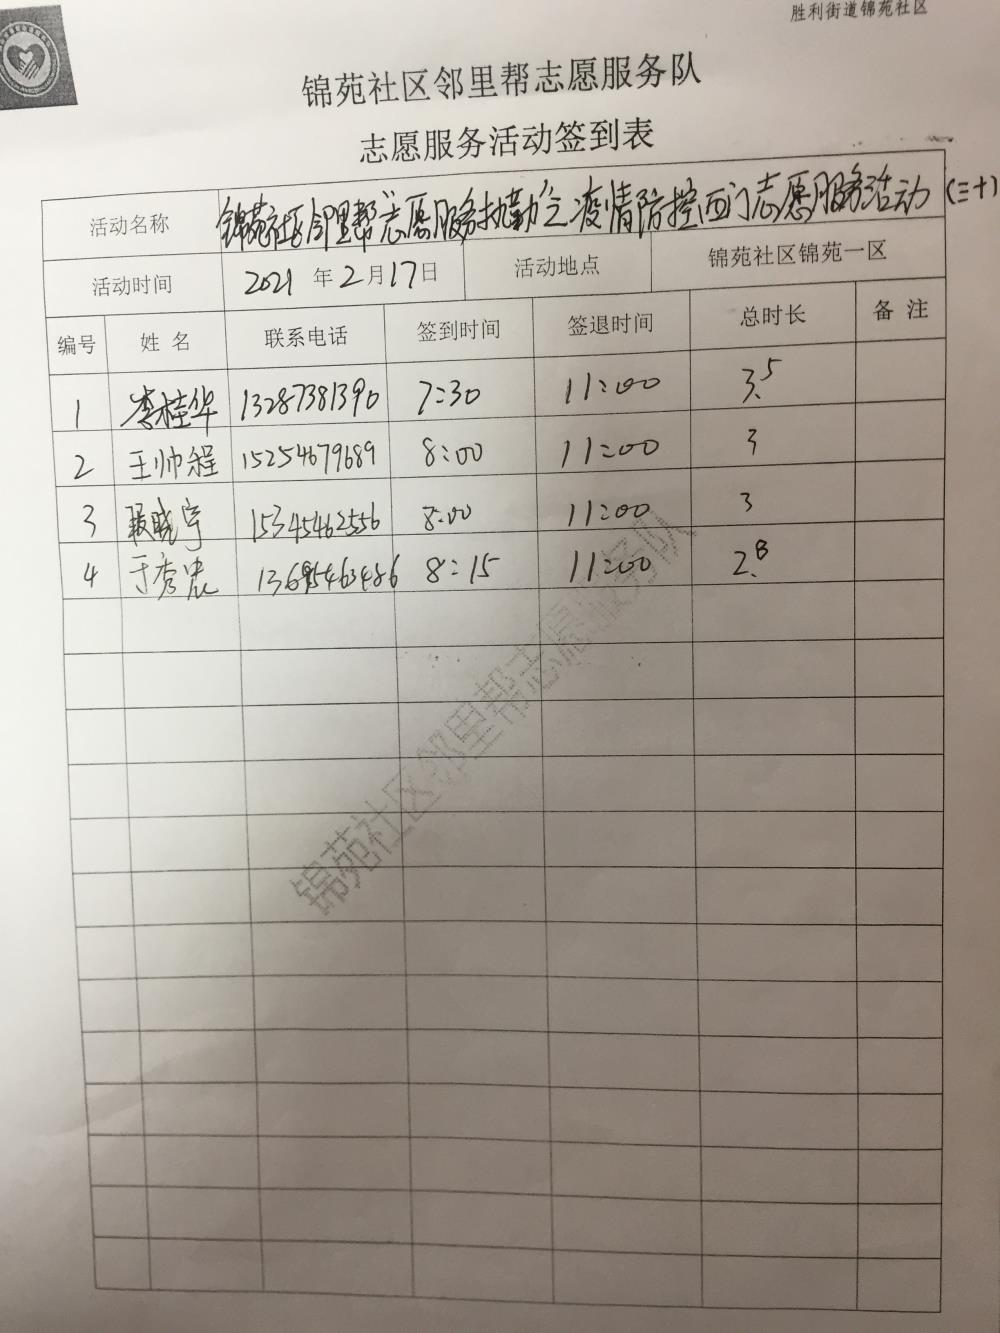 胜利街道锦苑社区
锦苑社区邻里帮志愿服务队
志愿服务活动签到表
活动名称 锦苑社区邻里帮“志愿服务执勤”之疫情防控西门志愿服务活动(三十)
活动时间 2021年2月17日 活动地点 锦苑社区锦苑一区
编号 姓名 联系电话 签到时间 签退时间 总时长 备注
1 李桂华 13287381390 7:30 11:00 3.5
2 王帅程 15254679689 8:00 11:00 3
3 晓宇 15345462556 8:00 11:00 3
4 于秀忠 8:15 11:00 2.8
锦苑社区邻里帮志愿服务队